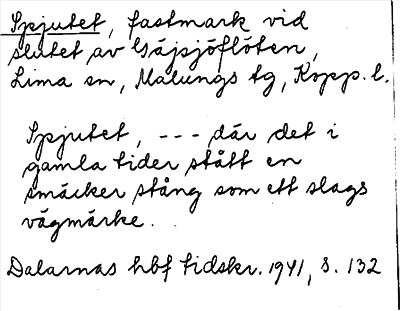 Spjutet, fastmark vid
slutet av Gåsjöflöten,
Lima sn, Malungs tg, Kopp. l.
Spjutet, --- där det i
gamla tider stått en
smäcker stång som ett slags
vägmärke.
Dalarnas hbf tidskr. 1941, s. 132